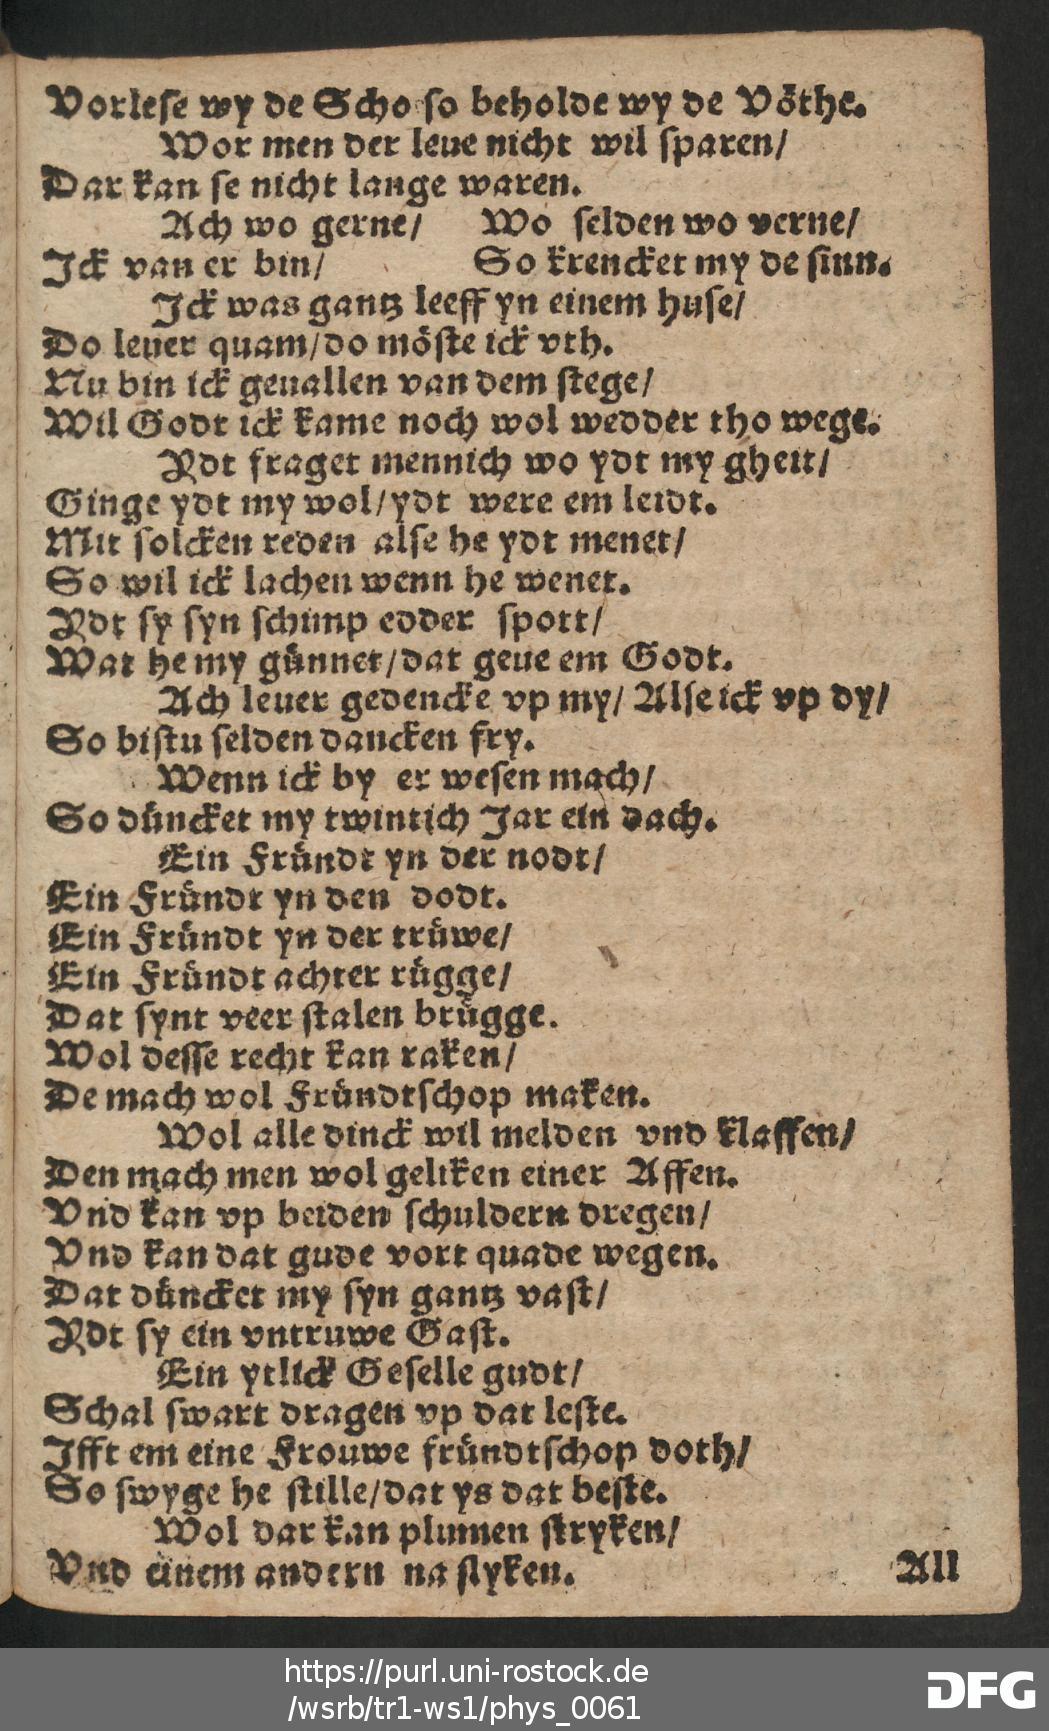 Vorlese wy de Scho so beholde wy de Vöthe.
Wor men der leue nicht wil sparen/
Dar kan se nicht lange waren.
Ach wo gerne/ Wo selden wo verne/
Jck van er bin/ So krencket my de sinn.
Jck was gantz leeff yn einem huse/
Do leuer quam/do möste ick vth.
Nu bin ick geuallen van dem stege/
Wil Godt ick kame noch wol wedder tho wege.
Ydt fraget mennich wo ydt my gheit/
Ginge ydt my wol/ydt were em leidt.
Mit solcken reden alse he ydt menet/
So wil ick lachen wenn he wenet.
Ydt sy syn schimp edder spott/
Wat he my günnet/dat geue em Godt.
Ach leuer gedencke vp my/ Alse ick vp dy/
So bistu selden dancken fry.
Wenn ick by er wesen mach/
So düncket my twintich Jar ein dach.
Ein Fründt yn der nodt/
Ein Fründt yn den dodt.
Ein Fründt yn der trüwe/
Ein Fründt achter rügge/
Dat synt veer stalen brügge.
Wol desse recht kan raken/
De mach wol Fründtschop maken.
Wol alle dinck wil melden vnd klaffen/
Den mach men wol geliken einer Affen.
Vnd kan vp beiden schuldern dregen/
Vnd kan dat gude vort quade wegen.
Dat düncket my syn gantz vast/
Ydt sy ein vntruwe Gast.
Ein ytlick Geselle gudt/
Schal swart dragen vp dat leste.
Jfft em eine Frouwe fründtschop doth/
So swyge he stille/dat ys dat beste.
Wol dar kan plumen stryken/
Vnd einem andern na slyken.
All
https://purl.uni-rostock.de
/wsrb/tr1-ws1/phys_0061
DFG